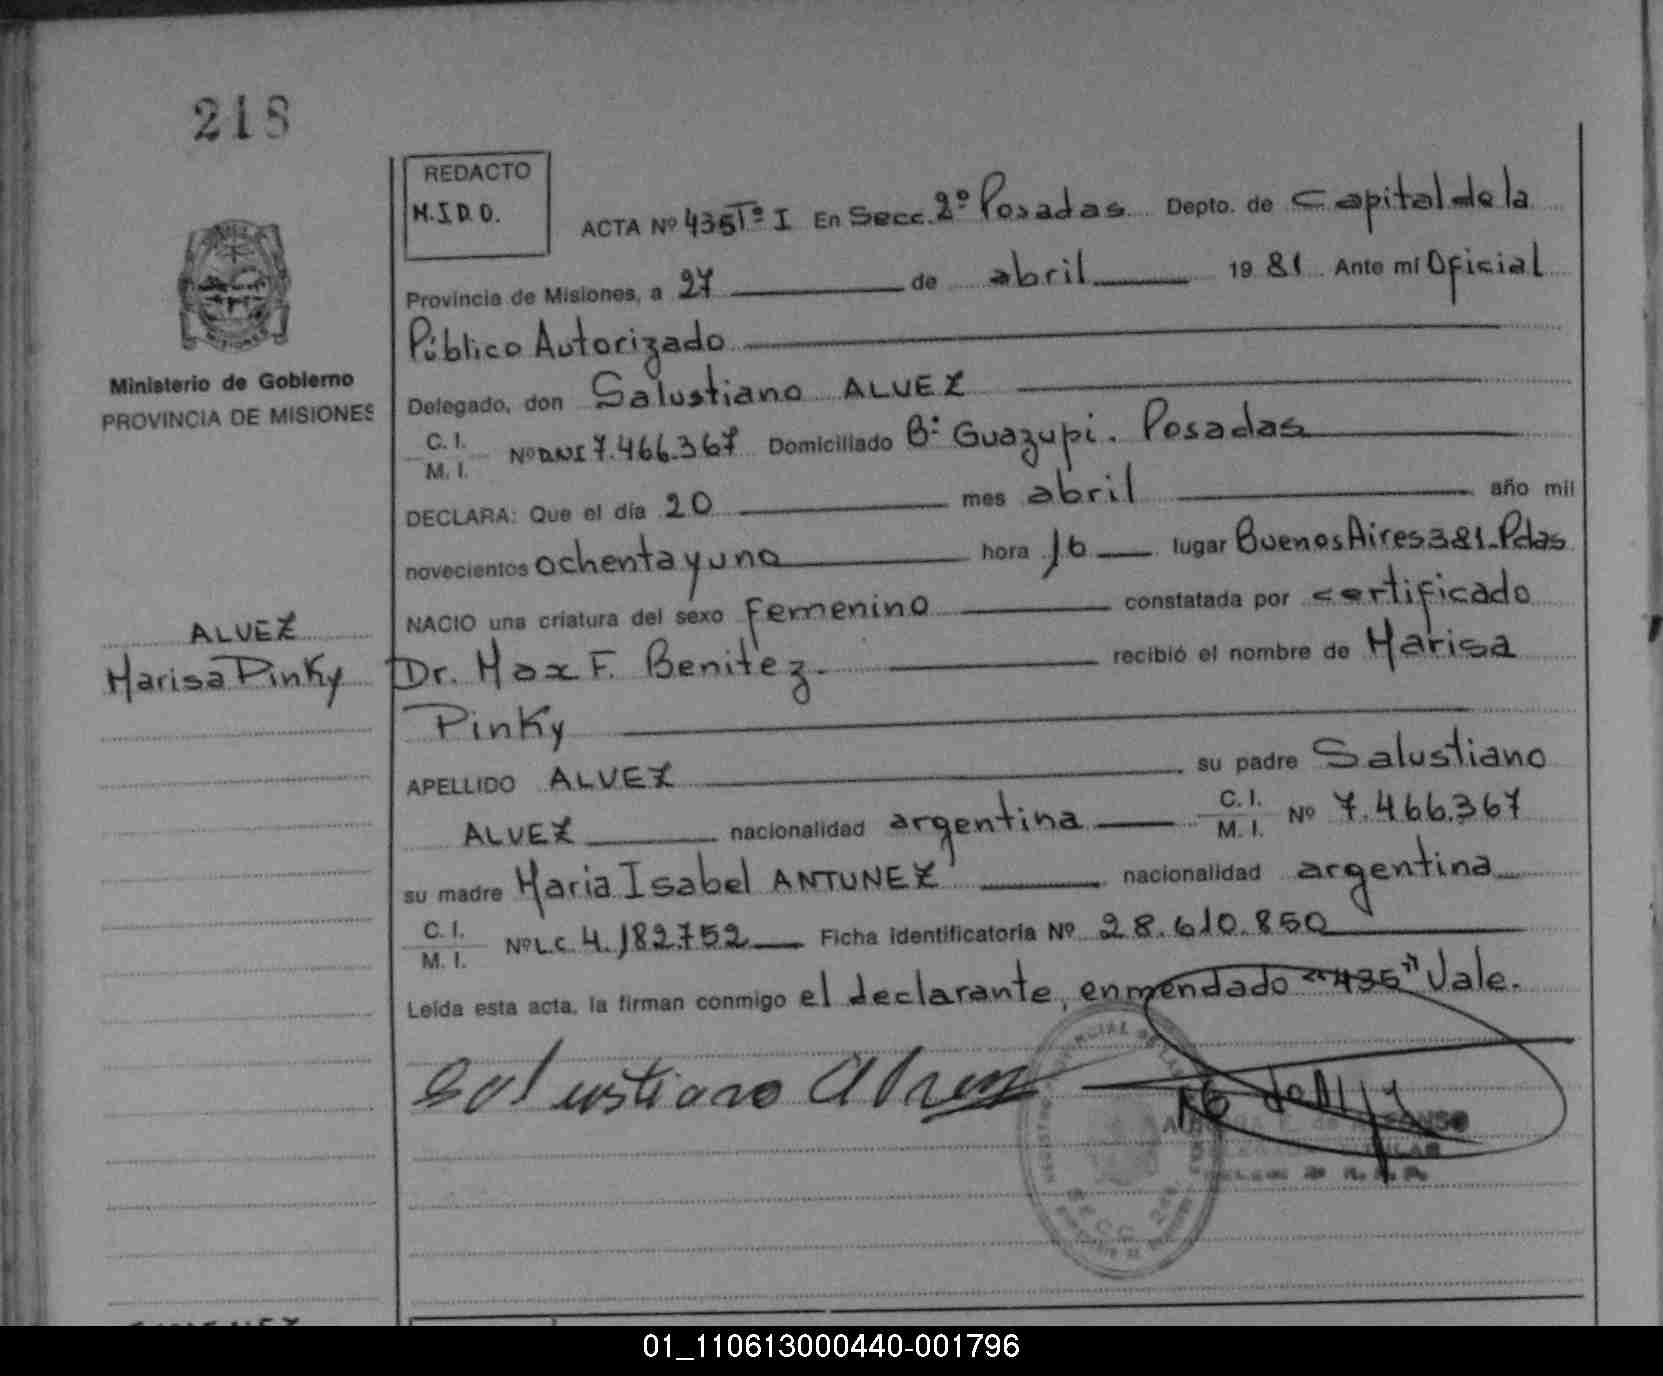 218
REDACTO
M.I.D.O.
ACTA Nº 435 Tº I En Secc. 2º Posadas Depto. de Capital de la
Provincia de Misiones, a 27 de abril 1981 Ante mí Oficial
Público Autorizado
Delegado, don Salustiano ALVEZ
C. I.
M. I. Nº DNI 7.466.367 Domiciliado Bº Guazupi. Posadas
DECLARA: Que el día 20 mes abril año mil
novecientos ochenta y uno hora 16 lugar Buenos Aires 381-Pdas
NACIO una criatura del sexo femenino constatada por certificado
Dr. Max F. Benitez. recibió el nombre de Marisa
Pinky
APELLIDO ALVEZ su padre Salustiano
ALVEZ nacionalidad argentina C. I.
M. I. Nº 7.466.367
su madre Maria Isabel ANTUNEZ nacionalidad argentina
C. I.
M. I. Nº L.C. 4.182.752 Ficha identificatoria Nº 28.610.850
Leída esta acta, la firman conmigo el declarante, enmendado "435" Vale.
Salustiano Alvez
SECC. 2da.
Ministerio de Gobierno
PROVINCIA DE MISIONES
ALVEZ
Marisa Pinky
01_110613000440-001796